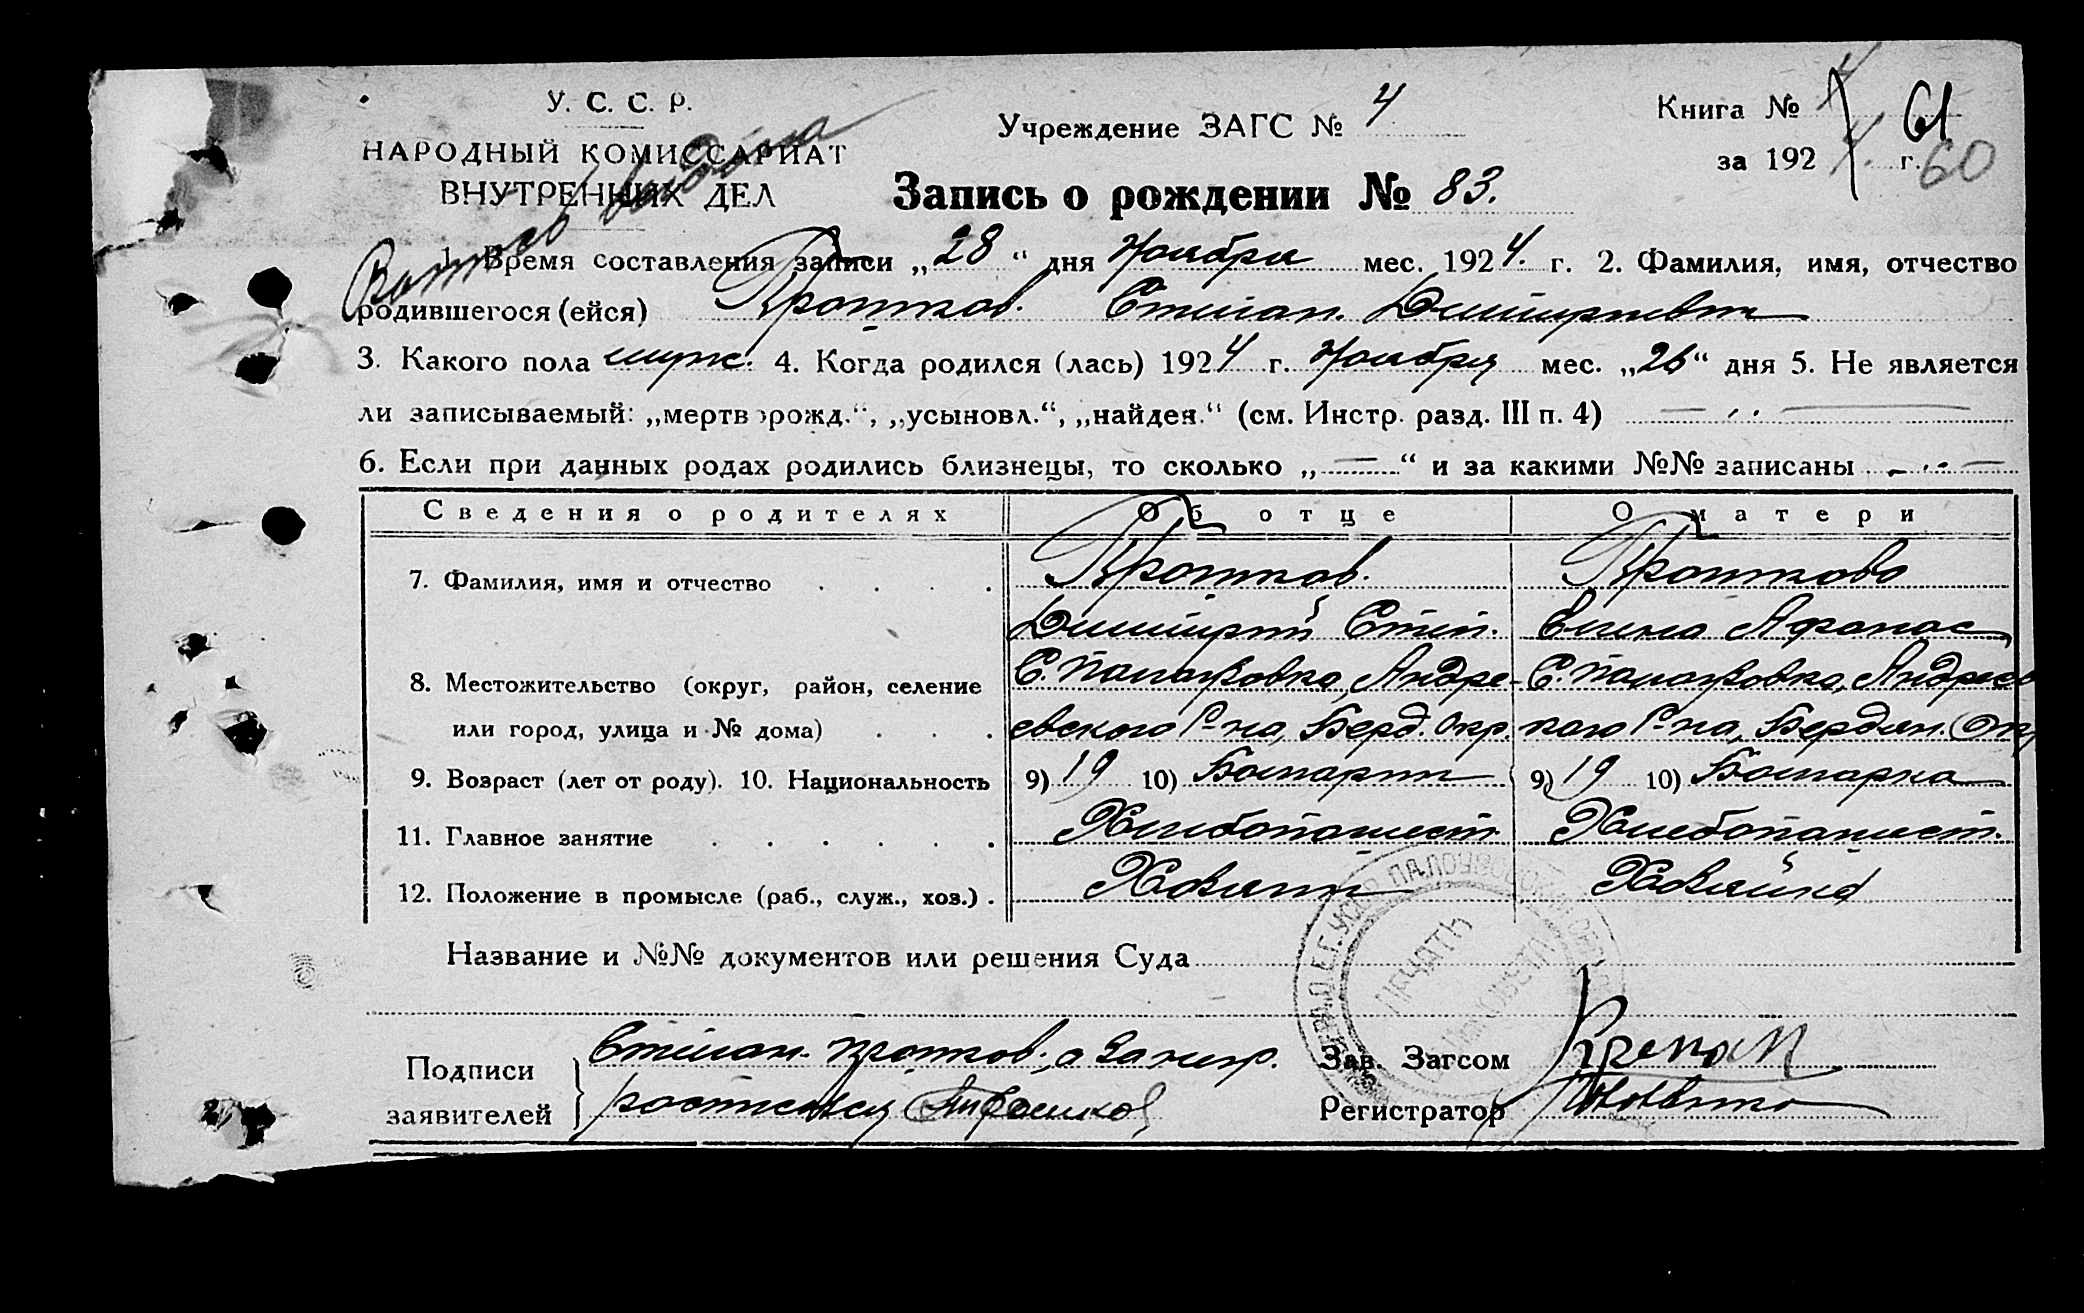 У. С. С. Р.
НАРОДНЫЙ КОМИССАРИАТ
ВНУТРЕННИХ ДЕЛ
Учреждение ЗАГС № 4
Книга №
61
за 192 4 г.
60
Запись о рождении № 83.
1. Время составления записи „28“ дня Ноября мес. 1924. г. 2. Фамилия, имя, отчество
родившегося (ейся) Кротков. Степан. Димитриевич
3. Какого пола муж. 4. Когда родился (лась) 1924 г. Ноября мес. „26“ дня 5. Не является
ли записываемый: „мертворожд.“, „усыновл.“, „найден.“ (см. Инстр. разд. III п. 4)
6. Если при данных родах родились близнецы, то сколько „—“ и за какими №№ записаны
Сведения о родителях Об отце О матери
7. Фамилия, имя и отчество Кротков. Кроткова
Димитрий Степ. Елена Афанас
8. Местожительство (округ, район, селение С. Палаузовка, Андре- С. Палаузовка, Андреев
или город, улица и № дома) евского Р-на, Берд. Окр. кого Р-на, Бердян. Окр
9. Возраст (лет от роду). 10. Национальность 9) 19 10) Болгарин 9) 19 10) Болгарка
11. Главное занятие Хлебопашест. Хлебопашест.
12. Положение в промысле (раб., служ., хоз.) Хозяин Хозяйка
Название и №№ документов или решения Суда
ПЕЧАТЬ
Подписи Степан Кротков, а за негр.
заявителей
Зав. Загсом
Регистратор